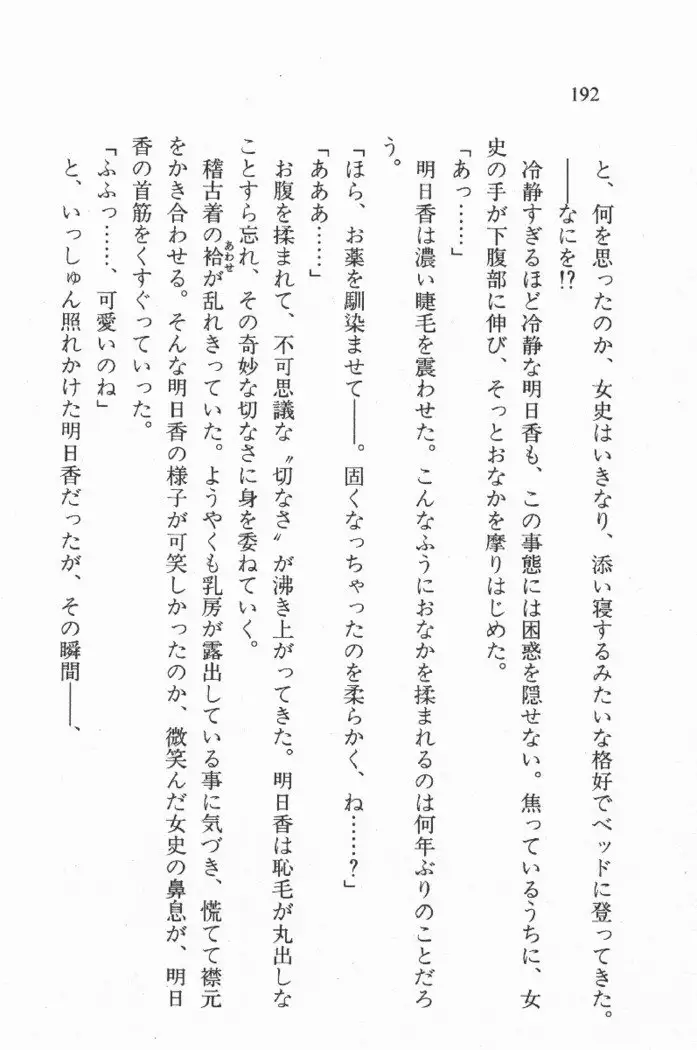 192
と、何を思ったのか、女史はいきなり、添い寝するみたいな格好でベッドに登ってきた。
――なにを!?
冷静すぎるほど冷静な明日香も、この事態には困惑を隠せない。焦っているうちに、女
史の手が下腹部に伸び、そっとおなかを摩りはじめた。
「あっ……」
明日香は濃い睫毛を震わせた。こんなふうにおなかを揉まれるのは何年ぶりのことだろ
う。
「ほら、お薬を馴染ませて――。固くなっちゃったのを柔らかく、ね……?」
「あああ……」
お腹を揉まれて、不可思議な〝切なさ〟が沸き上がってきた。明日香は恥毛が丸出しな
ことすら忘れ、その奇妙な切なさに身を委ねていく。
稽古着の袷あわせが乱れきっていた。ようやくも乳房が露出している事に気づき、慌てて襟元
をかき合わせる。そんな明日香の様子が可笑しかったのか、微笑んだ女史の鼻息が、明日
香の首筋をくすぐっていった。
「ふふっ……、可愛いのね」
と、いっしゅん照れかけた明日香だったが、その瞬間――、